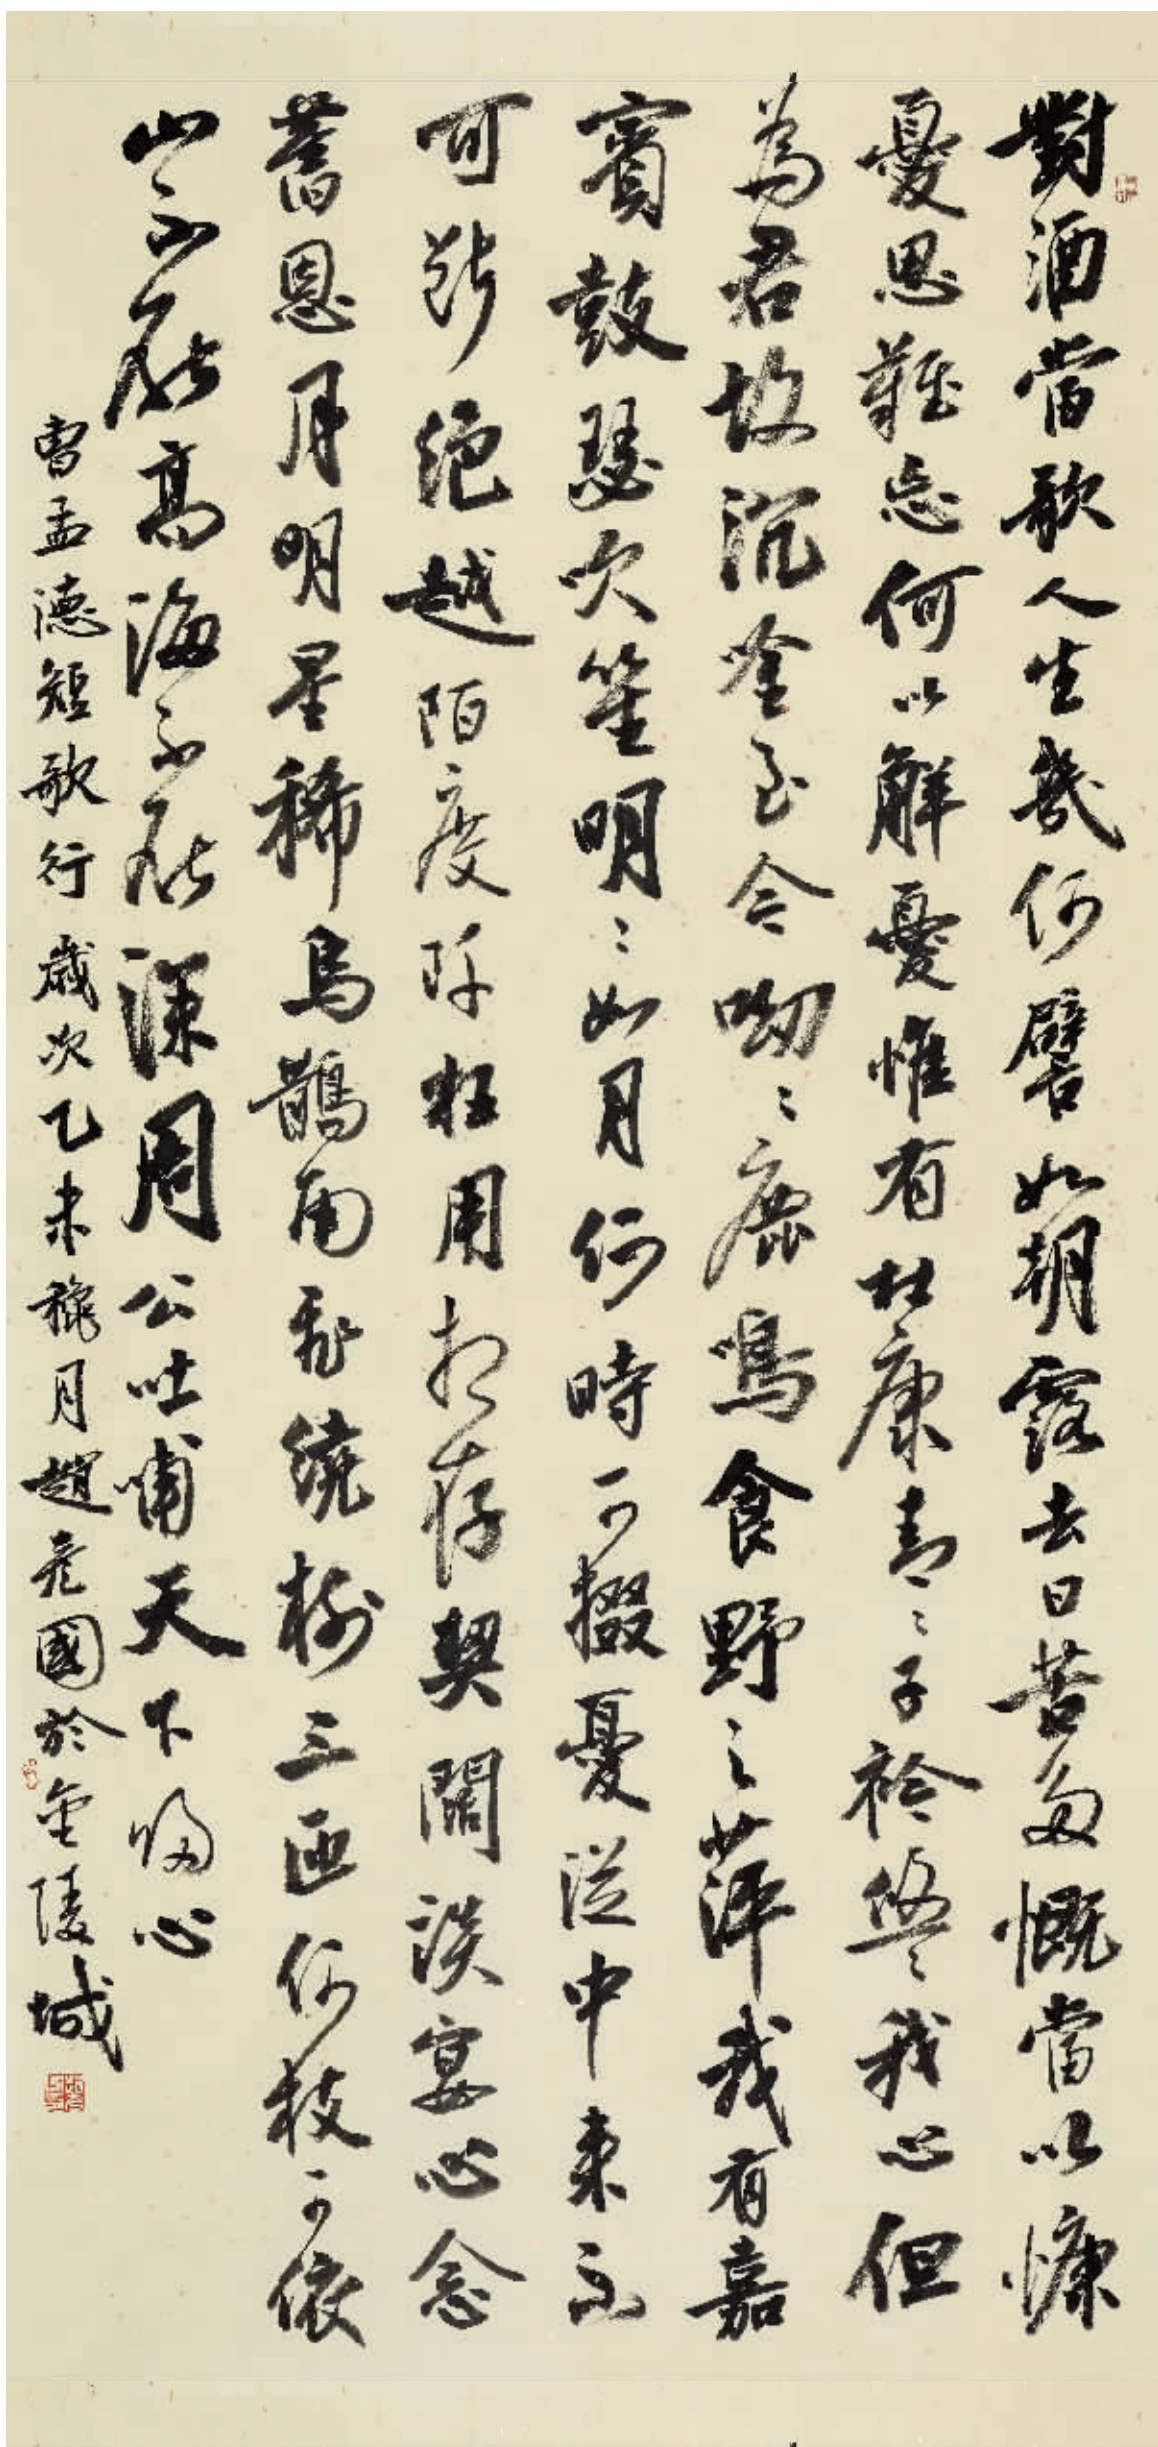 對酒當歌人生幾何譬如朝露去日苦多慨當以慷
憂思難忘何以解憂惟有杜康青〻子衿悠〻我心但
為君故沉唫至今呦〻鹿鳴食野之萍我有嘉
賓鼓瑟吹笙明〻如月何時可掇憂從中來不
可斷絕越陌度阡枉用相存契闊談宴心念
舊恩月明星稀烏鵲南飛繞樹三匝何枝可依
山不厭高海不厭深周公吐哺天下歸心
曹孟德短歌行歲次乙未穐月趙彥國於金陵城